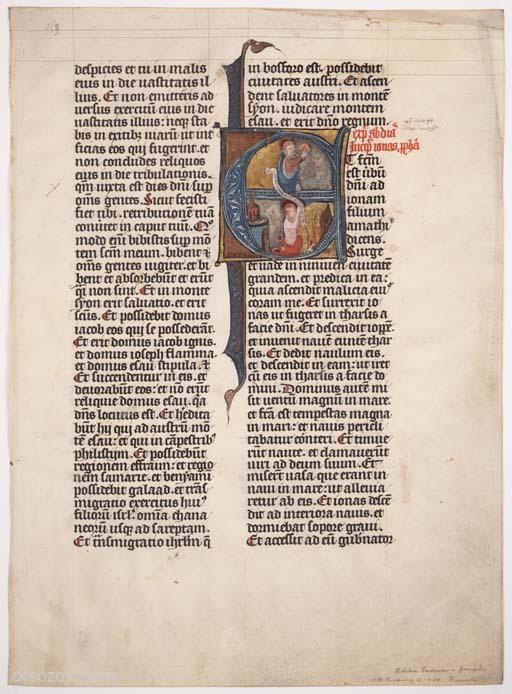 despicies et tu in malis
eius in die uastitatis il
lius. Et non emitteris ad
uersus exercitū eius in die
uastitatis illius: neqȝ sta
bis in exitibȝ eiarū ut int
ficias eos qui fugerint. et
non concludes reliquos
eius in die tribulationis.
qm̄ iuxta est dies dnī suꝑ
om̄s gentes. Sicut fecisti
fiet tibi. retributionē tuā
conuertet in caput tuū. Qͦ
modo eni bibistis suꝑ mō
tem scm̄ meum. bibent ⁊
om̄s gentes iugiter. et bi
bent et absorbebūt et erūt
qͣi non sint. Et in monte
syon erit saluatio. et erit
scūs. Et possidebit domus
iacob eos qui se possederāt.
Et erit domus iacob ignis.
et domus ioseph flamma.
et domus esau stipula. ⁊
Et succendentur in eis. et
deuorabūt eos: et nō erūt
reliquie domus esau. qͣ
dn̄s locutus est. Et h̓edita
būt hij qui ad austrū mō
tē esau: et qui in cāpestribꝰ
philistijm. Et possidebūt
regionem effraim: et regio
nem samarie. et beniami
possidebit galaad. et trās
migratio exercitus huiꝰ
filioꝝ isrl̓. omīa chana
neoꝝ usqȝ ad sareptam.
Et trāsmigratio ihrl̓m q̄
in bosforo est. possidebit
ciuitates austri. Et ascen
dent saluatores in montē
syon. iudicare montem
esau. et erit dnō regnum.
exp̄ abdias
Incip̄ ionas ꝓph̄a.
E
t fcm̄
est ūbū
dnī ad
ionam
filium
amathi
dicens.
Surge
et uade in niniuen ciuitatē
grandem. et predica in ea:
quia ascendit malicia eiꝰ
coram me. Et surrexit io
nas ut fugeret in tharsis a
facie dnī. Et descendit ioppē.
et inuenit nauē euntē thar
sis. Et dedit naulum eis.
et descendit in eam: ut iret
cū eis in tharsis a facie do
mini. Dominus autē mi
sit uentū magnū in mare.
et fcā est tempestas magna
in mari: et nauis pericli
tabatur conteri. Et timue
rūt naute. et clamauerūt
uiri ad deum suum. Et
miserūt uasa que erant in
naui in mare: ut alleuia
retur ab eis. Et ionas descē
dit ad interiora nauis. et
dormiebat sopore graui.
Et accessit ad eū gubnator
orsozox.com